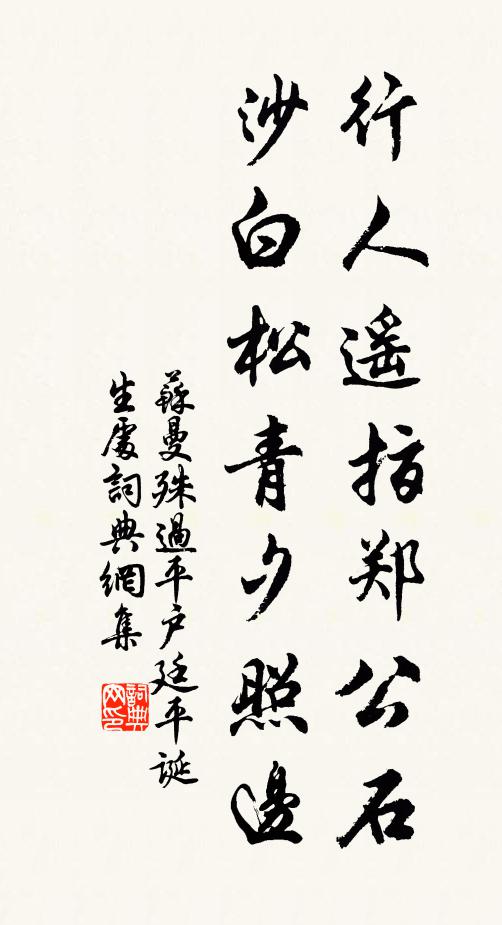 行人遥指郑公石
沙白松青夕照邊
蘇曼殊過平户延平誕
生處詞典網集
詞典网印